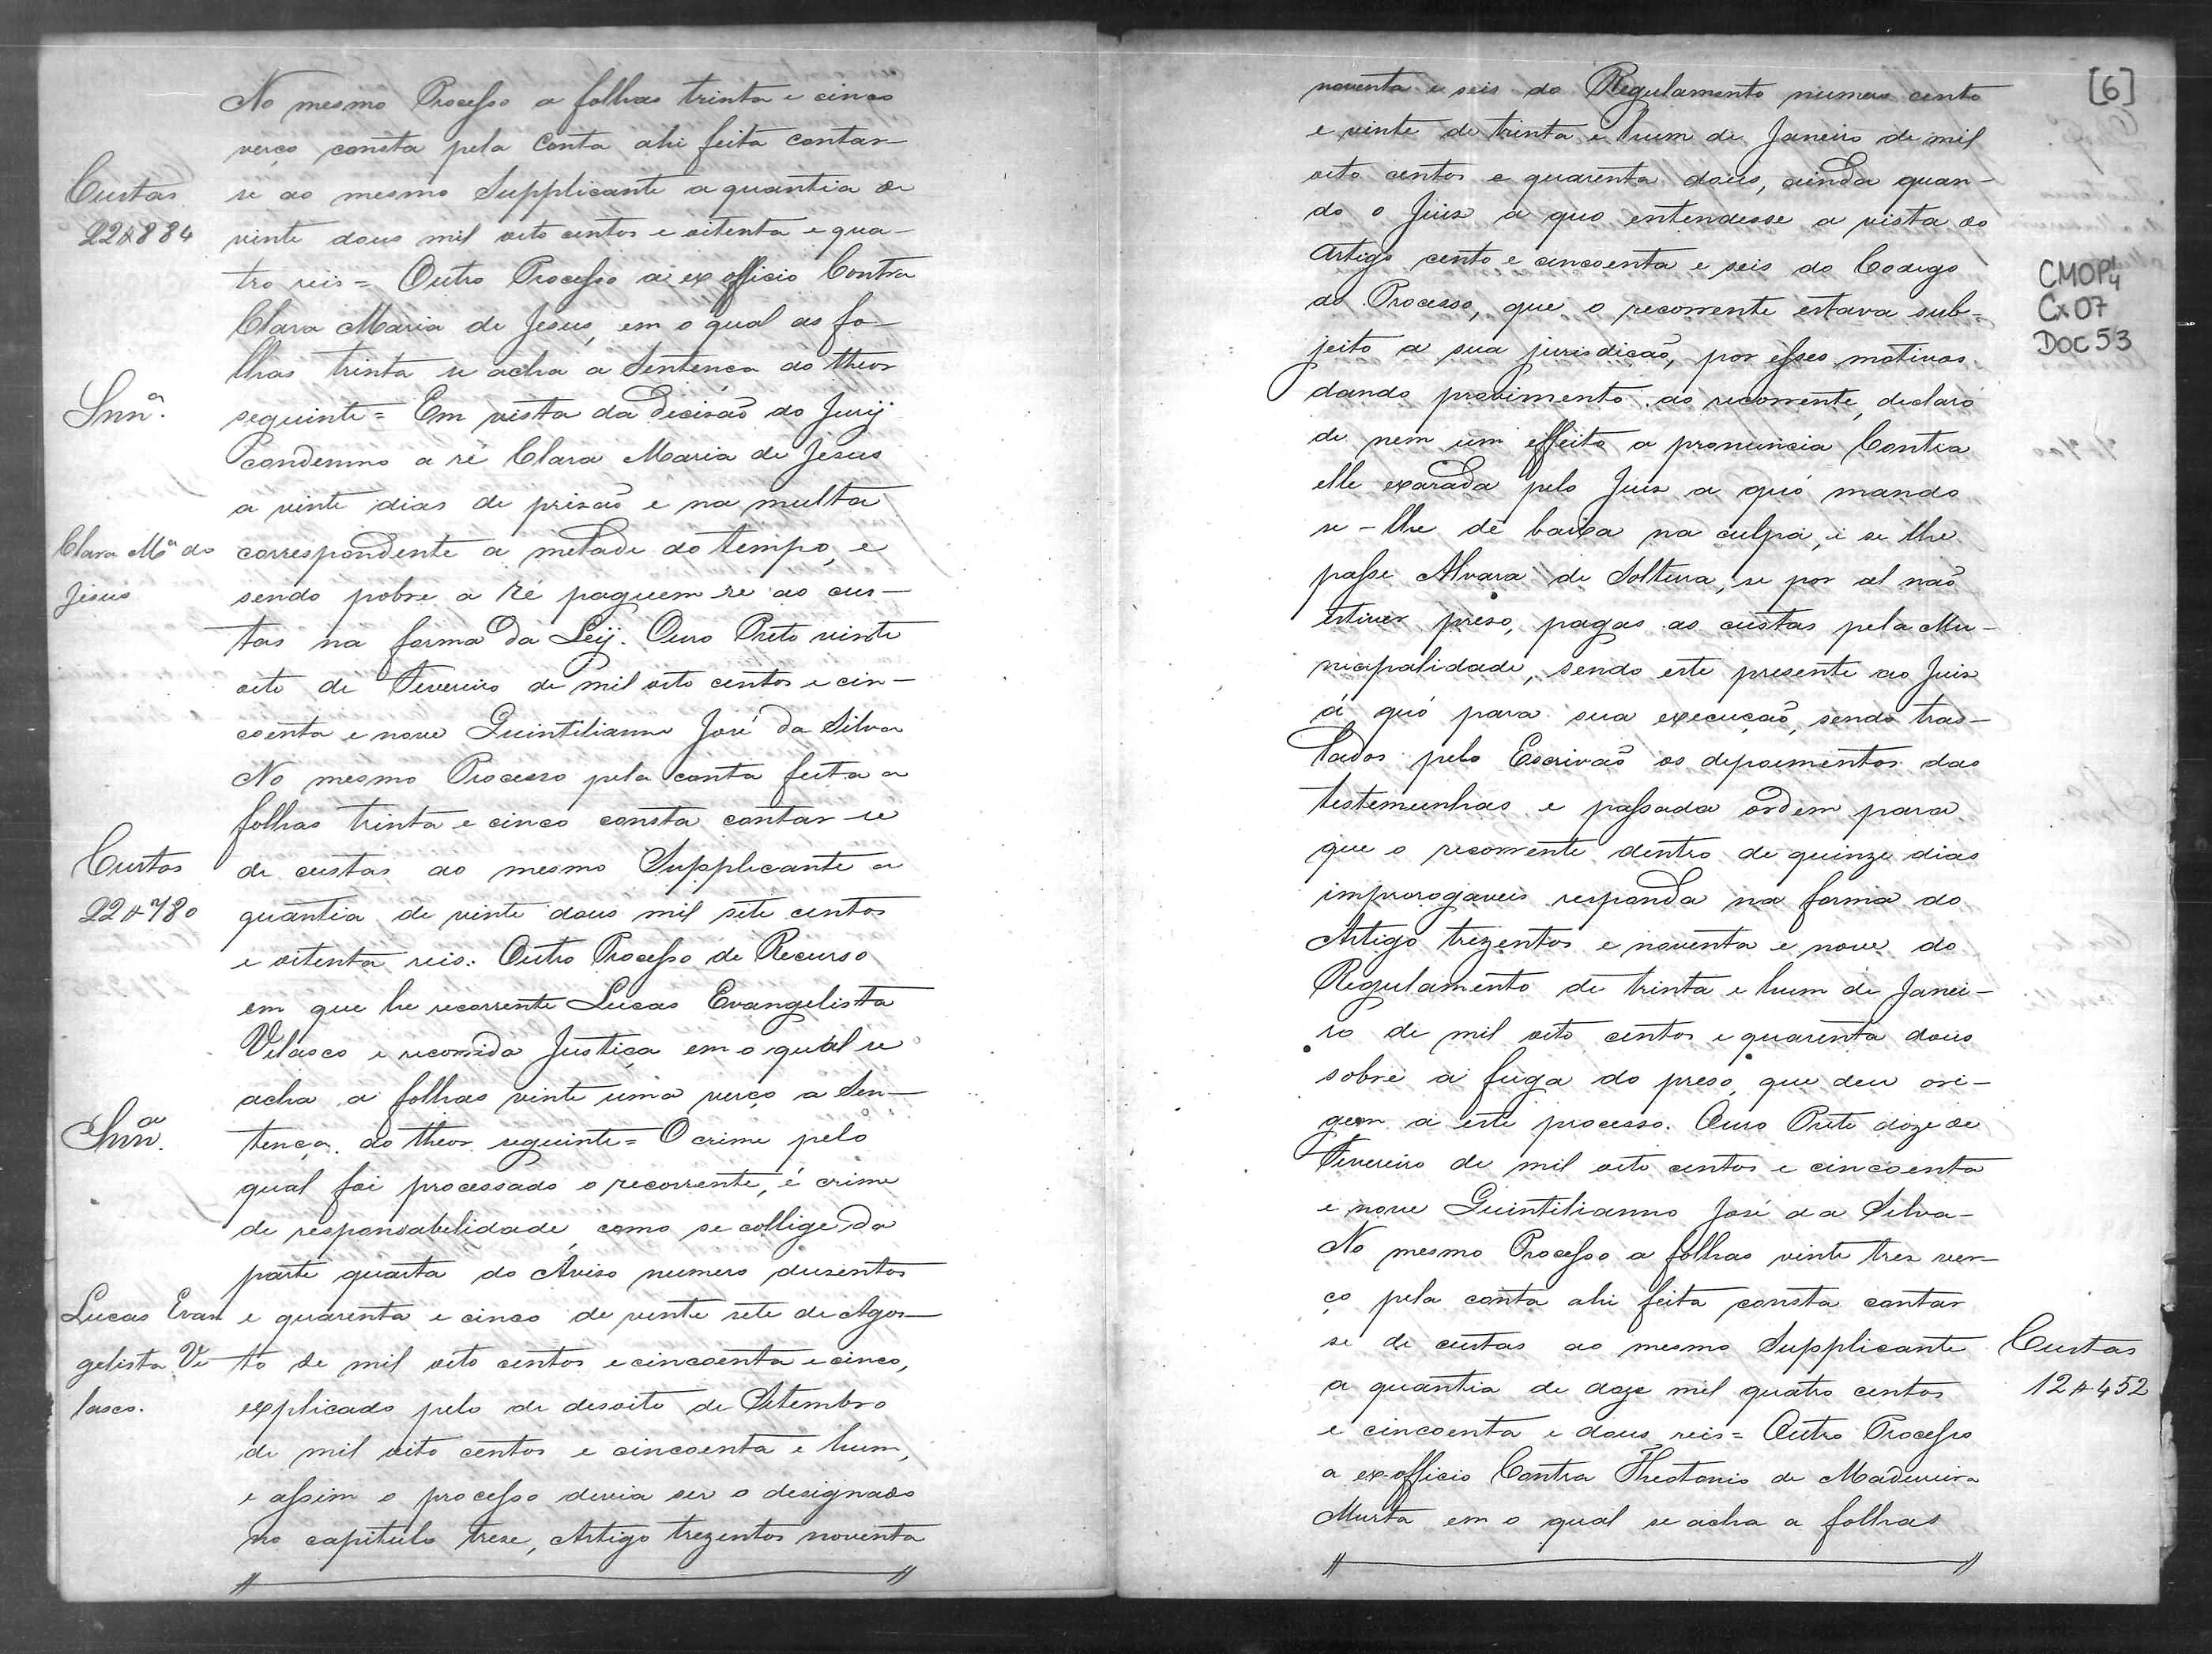 No mesmo Processo a folhas trinta e cinco
verço consta pela Conta ahi feita contar-
Custas
22$884
se ao mesmo Supplicante a quantia de
vinte dous mil oito centos e oitenta e qua-
tro reis = Outro Processo a ex officio Contra
Clara Maria de Jesus, em o qual as fo-
lhas trinta se acha a Sentença do theor
Snnª.
seguinte = Em vista da decisão do Jurij
condemno a ré Clara Maria de Jesus
a vinte dias de prizaõ e na multa
Clara Mª de
Jesus
correspondente a metade do tempo, e
sendo pobre a ré paguem se as cus-
tas na forma da Leij. Ouro Preto vinte
oito de Fevereiro de mil oito centos e cin-
coenta e nove Quintilianno José da Silva
No mesmo Processo pela conta feita a
folhas trinta e cinco consta contar-se
Custas
22$780
de custas ao mesmo Supplicante a
quantia de vinte dous mil sete centos
e oitenta reis: Outro Processo de Recurso
em que he recorrente Lucas Evangelista
Velasco e recorrida Justiça em o qual se
acha a folhas vinte uma verço a Sen-
Snnª.
tença do theor seguinte = O crime pelo
qual foi processado o recorrente, é crime
de responsabelidade, como se collige da
parte quarta do Aviso numero dusentos
Lucas Evan
gelista Ve
lasco.
e quarenta e cinco de vinte sete de Agos-
to de mil oito centos e cincoenta e cinco,
explicado pelo de desoito de Setembro
de mil oito centos e cincoenta e hum,
e assim o processo devia ser o designado
no capitulo treze, Artigo trezentos noventa
[6]
noventa e seis do Regulamento numero cento
e vinte de trinta e hum de Janeiro de mil
oito centos e quarenta dous, ainda quan-
do o Juis a quo entendesse a vista do
Artigo cento e cincoenta e seis do Codego
do Processo, que o recorrente estava sub-
jeito a sua jurisdicaõ, por esses motivos
dando provimento ao recorrente, declaro
de nem um effeito a pronuncia Contra
elle exarada pelo Juis a quó mando
se-lhe dê baixa na culpa, e se lhe
passe Alvara de Soltura, se por al naõ
estiver preso, pagas as custas pela Mu-
nicipalidade, sendo este presente ao Juis
á quó para sua execuçaõ, sendo tras-
lados pelo Escrivaõ os depoimentos das
testemunhas e passada ordem para
que o recorrente dentro de quinze dias
improrogaveis responda na forma do
Artigo trezentos e noventa e nove do
Regulamento de trinta e hum de Janei-
ro de mil oito centos e quarenta dous
sobre a fuga do preso, que deu ori-
gem a este processo. Ouro Preto doze de
Fevereiro de mil oito centos e cincoenta
e nove Quintilianno José da Silva-
No mesmo Processo a folhas vinte tres ver-
ço pela conta ahi feita consta contar
se de custas ao mesmo Supplicante
a quantia de doze mil quatro centos
Custas
12$452
e cincoenta e dous reis = Outro Processo
a ex-officio Contra Theotonio de Madureira
Murta em o qual se acha a folhas
CMOP4
Cx 07
Doc 53